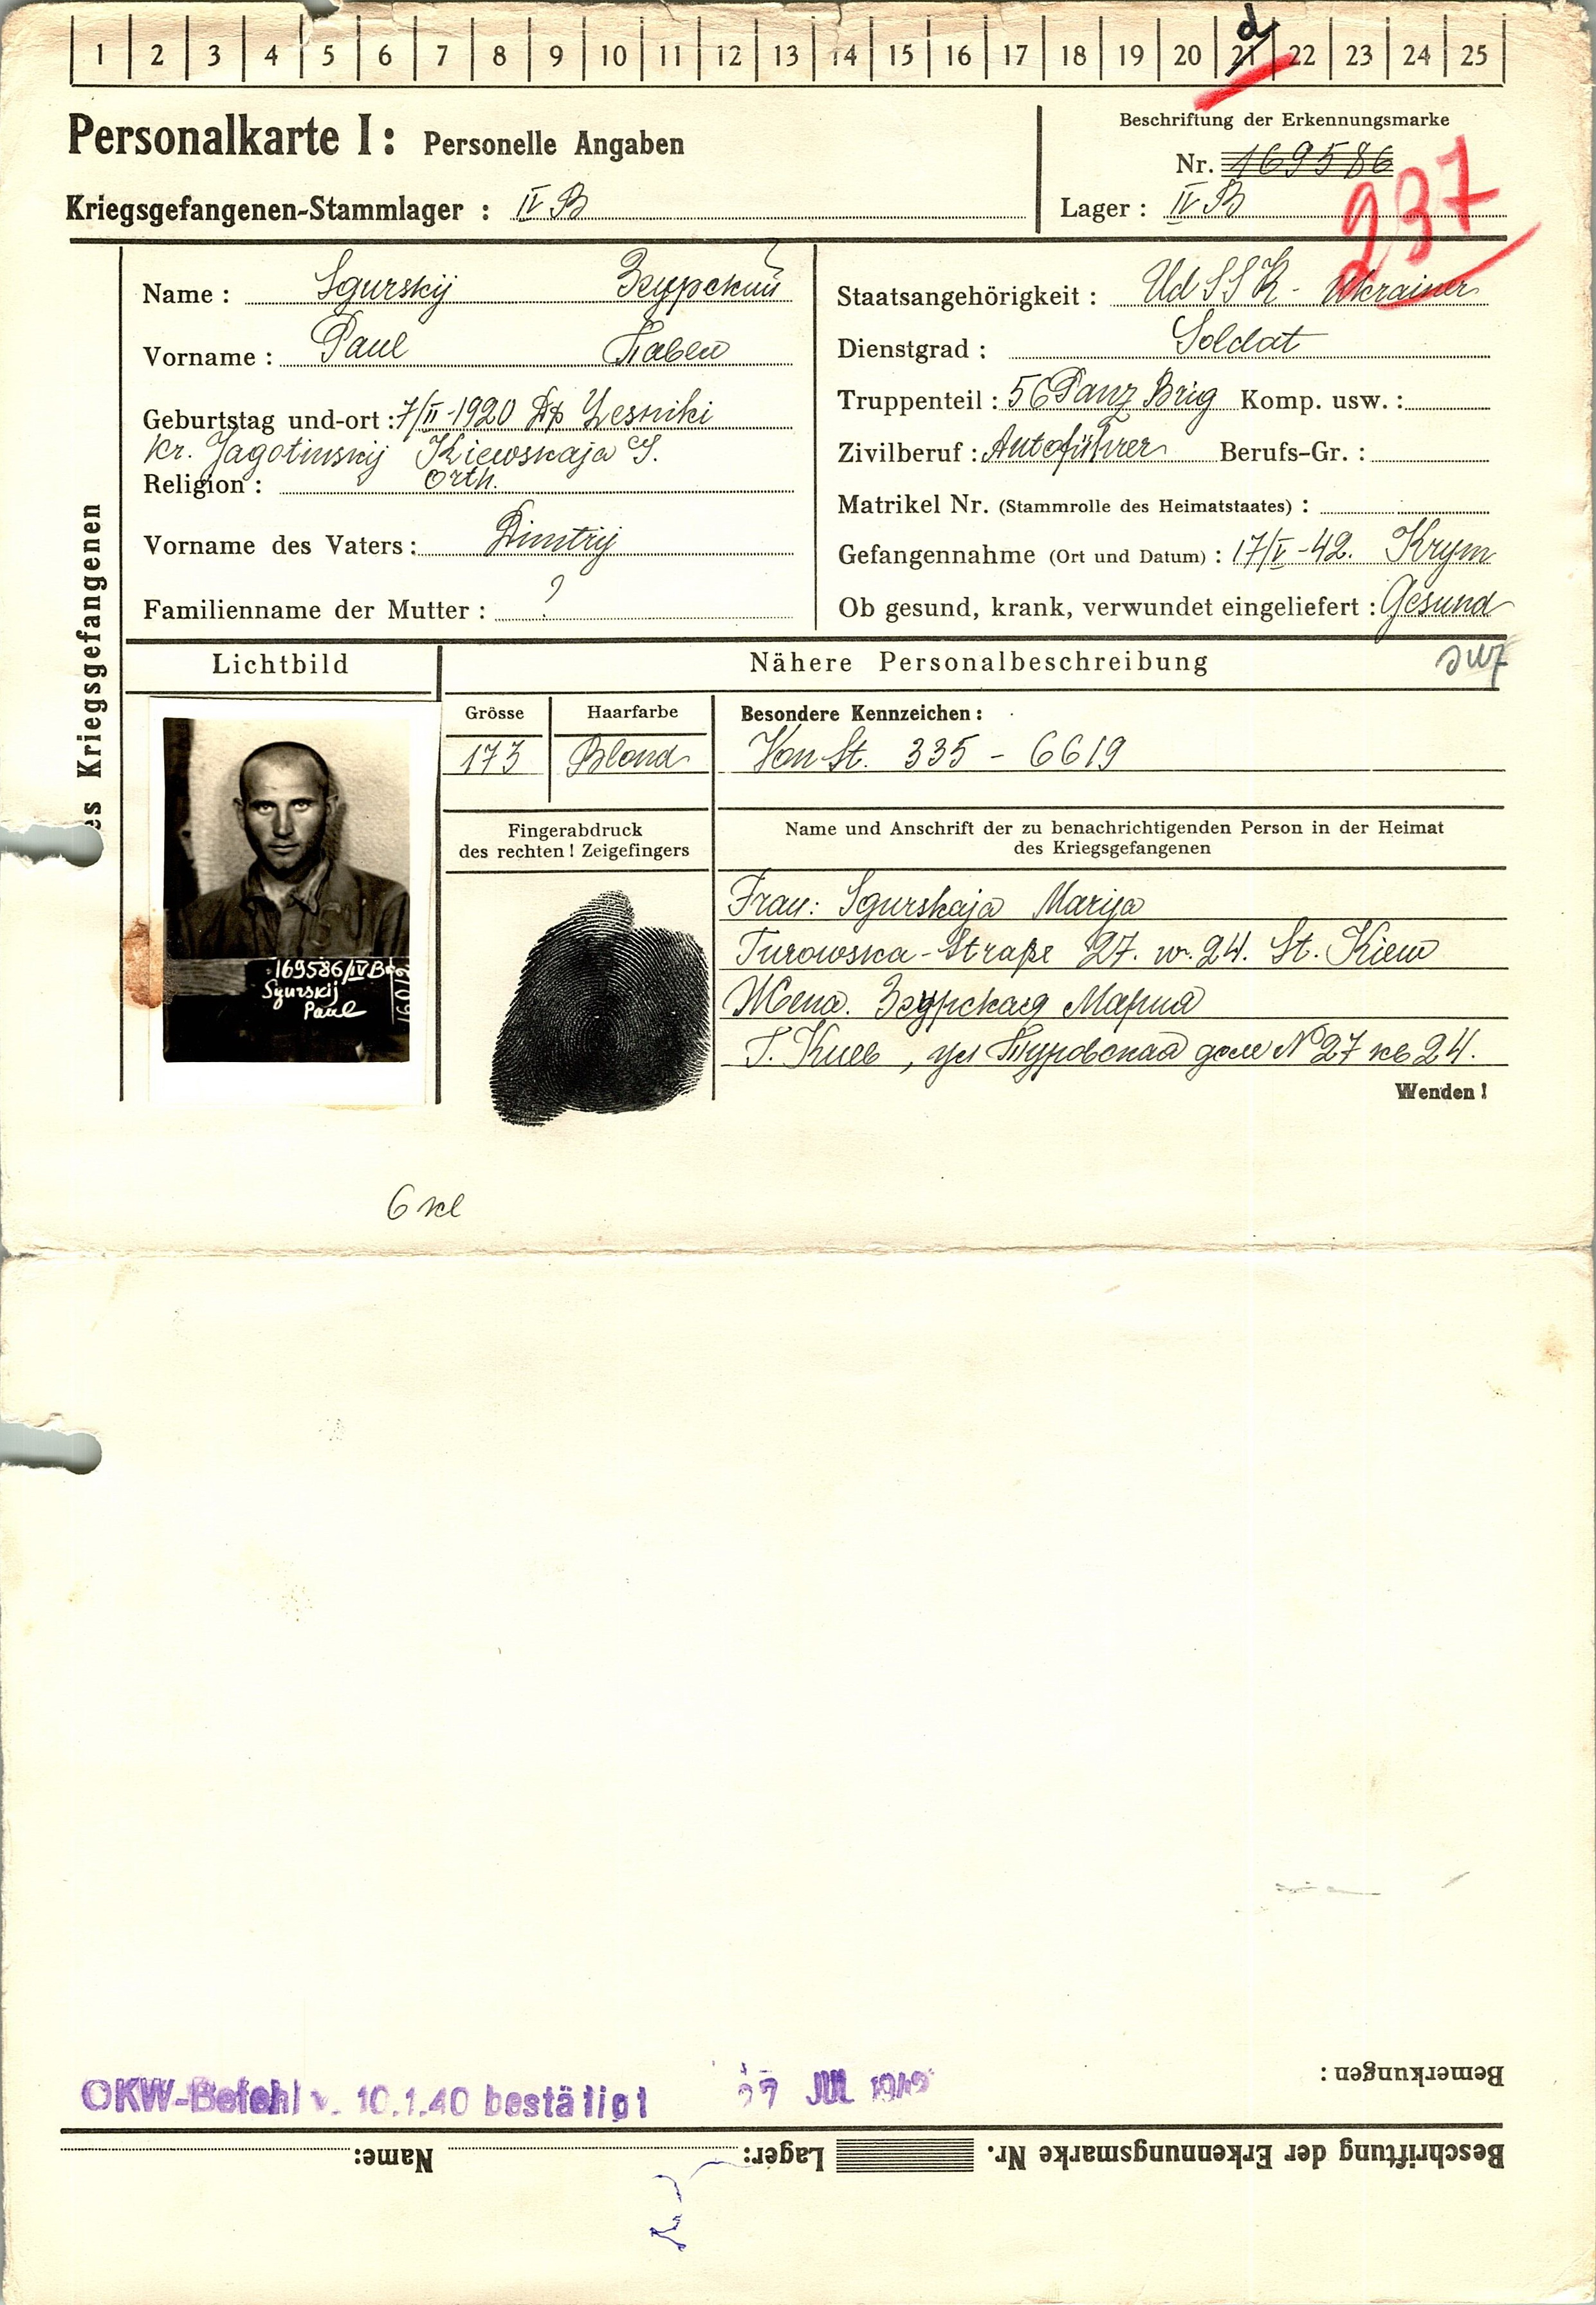 1 2 3 4 5 6 7 8 9 10 11 12 13 14 15 16 17 18 19 20 21 22 23 24 25
d
Personalkarte I: Personelle Angaben
Beschriftung der Erkennungsmarke
Nr. 169586
237
Kriegsgefangenen-Stammlager : IV B
Lager : IV B
es Kriegsgefangenen
Name : Sgurskij Згурский
Vorname : Paul Павел
Geburtstag und-ort : 7/II-1920 Lesniki
Kr. Jagotinskij Kiewskaja
Religion : Orth.
Vorname des Vaters : Dimitrij
Familienname der Mutter : ?
Staatsangehörigkeit : UdSSR - Ukrainer
Dienstgrad : Soldat
Truppenteil : 56 Panz Brig Komp. usw. :
Zivilberuf : Autoführer Berufs-Gr. :
Matrikel Nr. (Stammrolle des Heimatstaates) :
Gefangennahme (Ort und Datum) : 17/V-42. Krym
Ob gesund, krank, verwundet eingeliefert : Gesund
Lichtbild
169586/IVB
Sgurskij
Paul
Nähere Personalbeschreibung
Grösse
173
Haarfarbe
Blond
Besondere Kennzeichen :
Von St. 335 - 6619
Fingerabdruck
des rechten ! Zeigefingers
Name und Anschrift der zu benachrichtigenden Person in der Heimat
des Kriegsgefangenen
Frau: Sgurskaja Marija
Turowska-Straße 27. w. 24. St. Kiew
Жена. Згурская Мария
Г. Киев, ул Туровская дом №27 кв 24.
Wenden !
6 кл
Bemerkungen :
OKW-Befehl v. 10.1.40 bestätigt
JUL
Beschriftung der Erkennungsmarke Nr. Lager: Name: